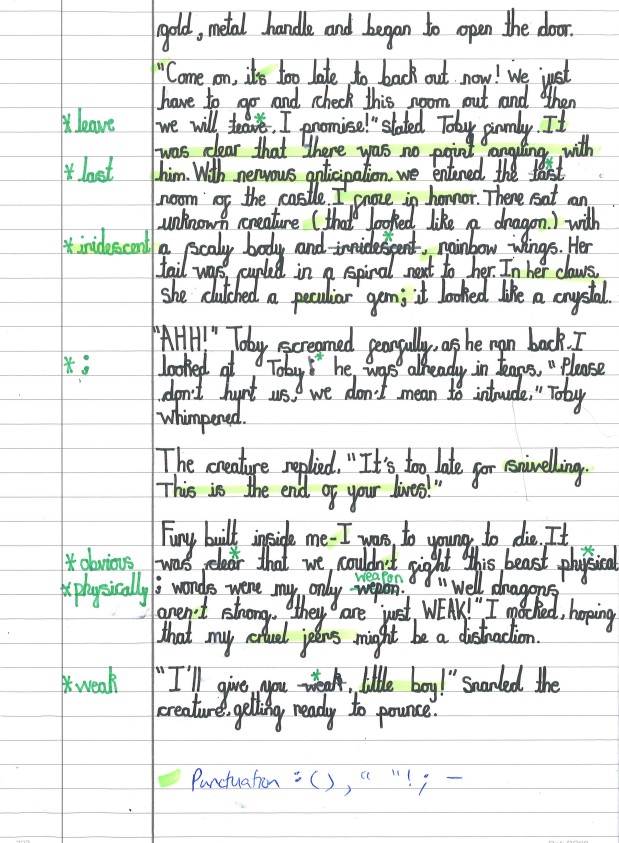 gold, metal handle and began to open the door.
"Come on, it's too late to back out now! We just
have to go and check this room out and then
* leave we will teave*, I promise!" stated Toby firmly. It
was clear that there was no point arguing with
* last him. With nervous anticipation, we entered the tast*
room of the castle. I froze in horror. There sat an
unknown creature (that looked like a dragon.) with
* iridescent a scaly body and irridescent*, rainbow wings. Her
tail was curled in a spiral next to her. In her claws,
she clutched a peculiar gem; it looked like a crystal.
"AHH!" Toby screamed fearfully, as he ran back. I
* ; looked at Toby;* he was already in tears, "Please
don't hurt us, we don't mean to intrude," Toby
whimpered.
The creature replied, "It's too late for snivelling.
This is the end of your lives!"
Fury built inside me - I was to young to die. It
* obvious was clear* that we couldn't fight this beast physical*
* physically ; words were my only wepon. weapon "Well dragons
aren't strong, they are just WEAK!" I mocked, hoping
that my cruel jeers might be a distraction.
* weak "I'll give you weak*, little boy!" Snarled the
creature, getting ready to pounce.
Punctuation : ( ) , " " ! ; -